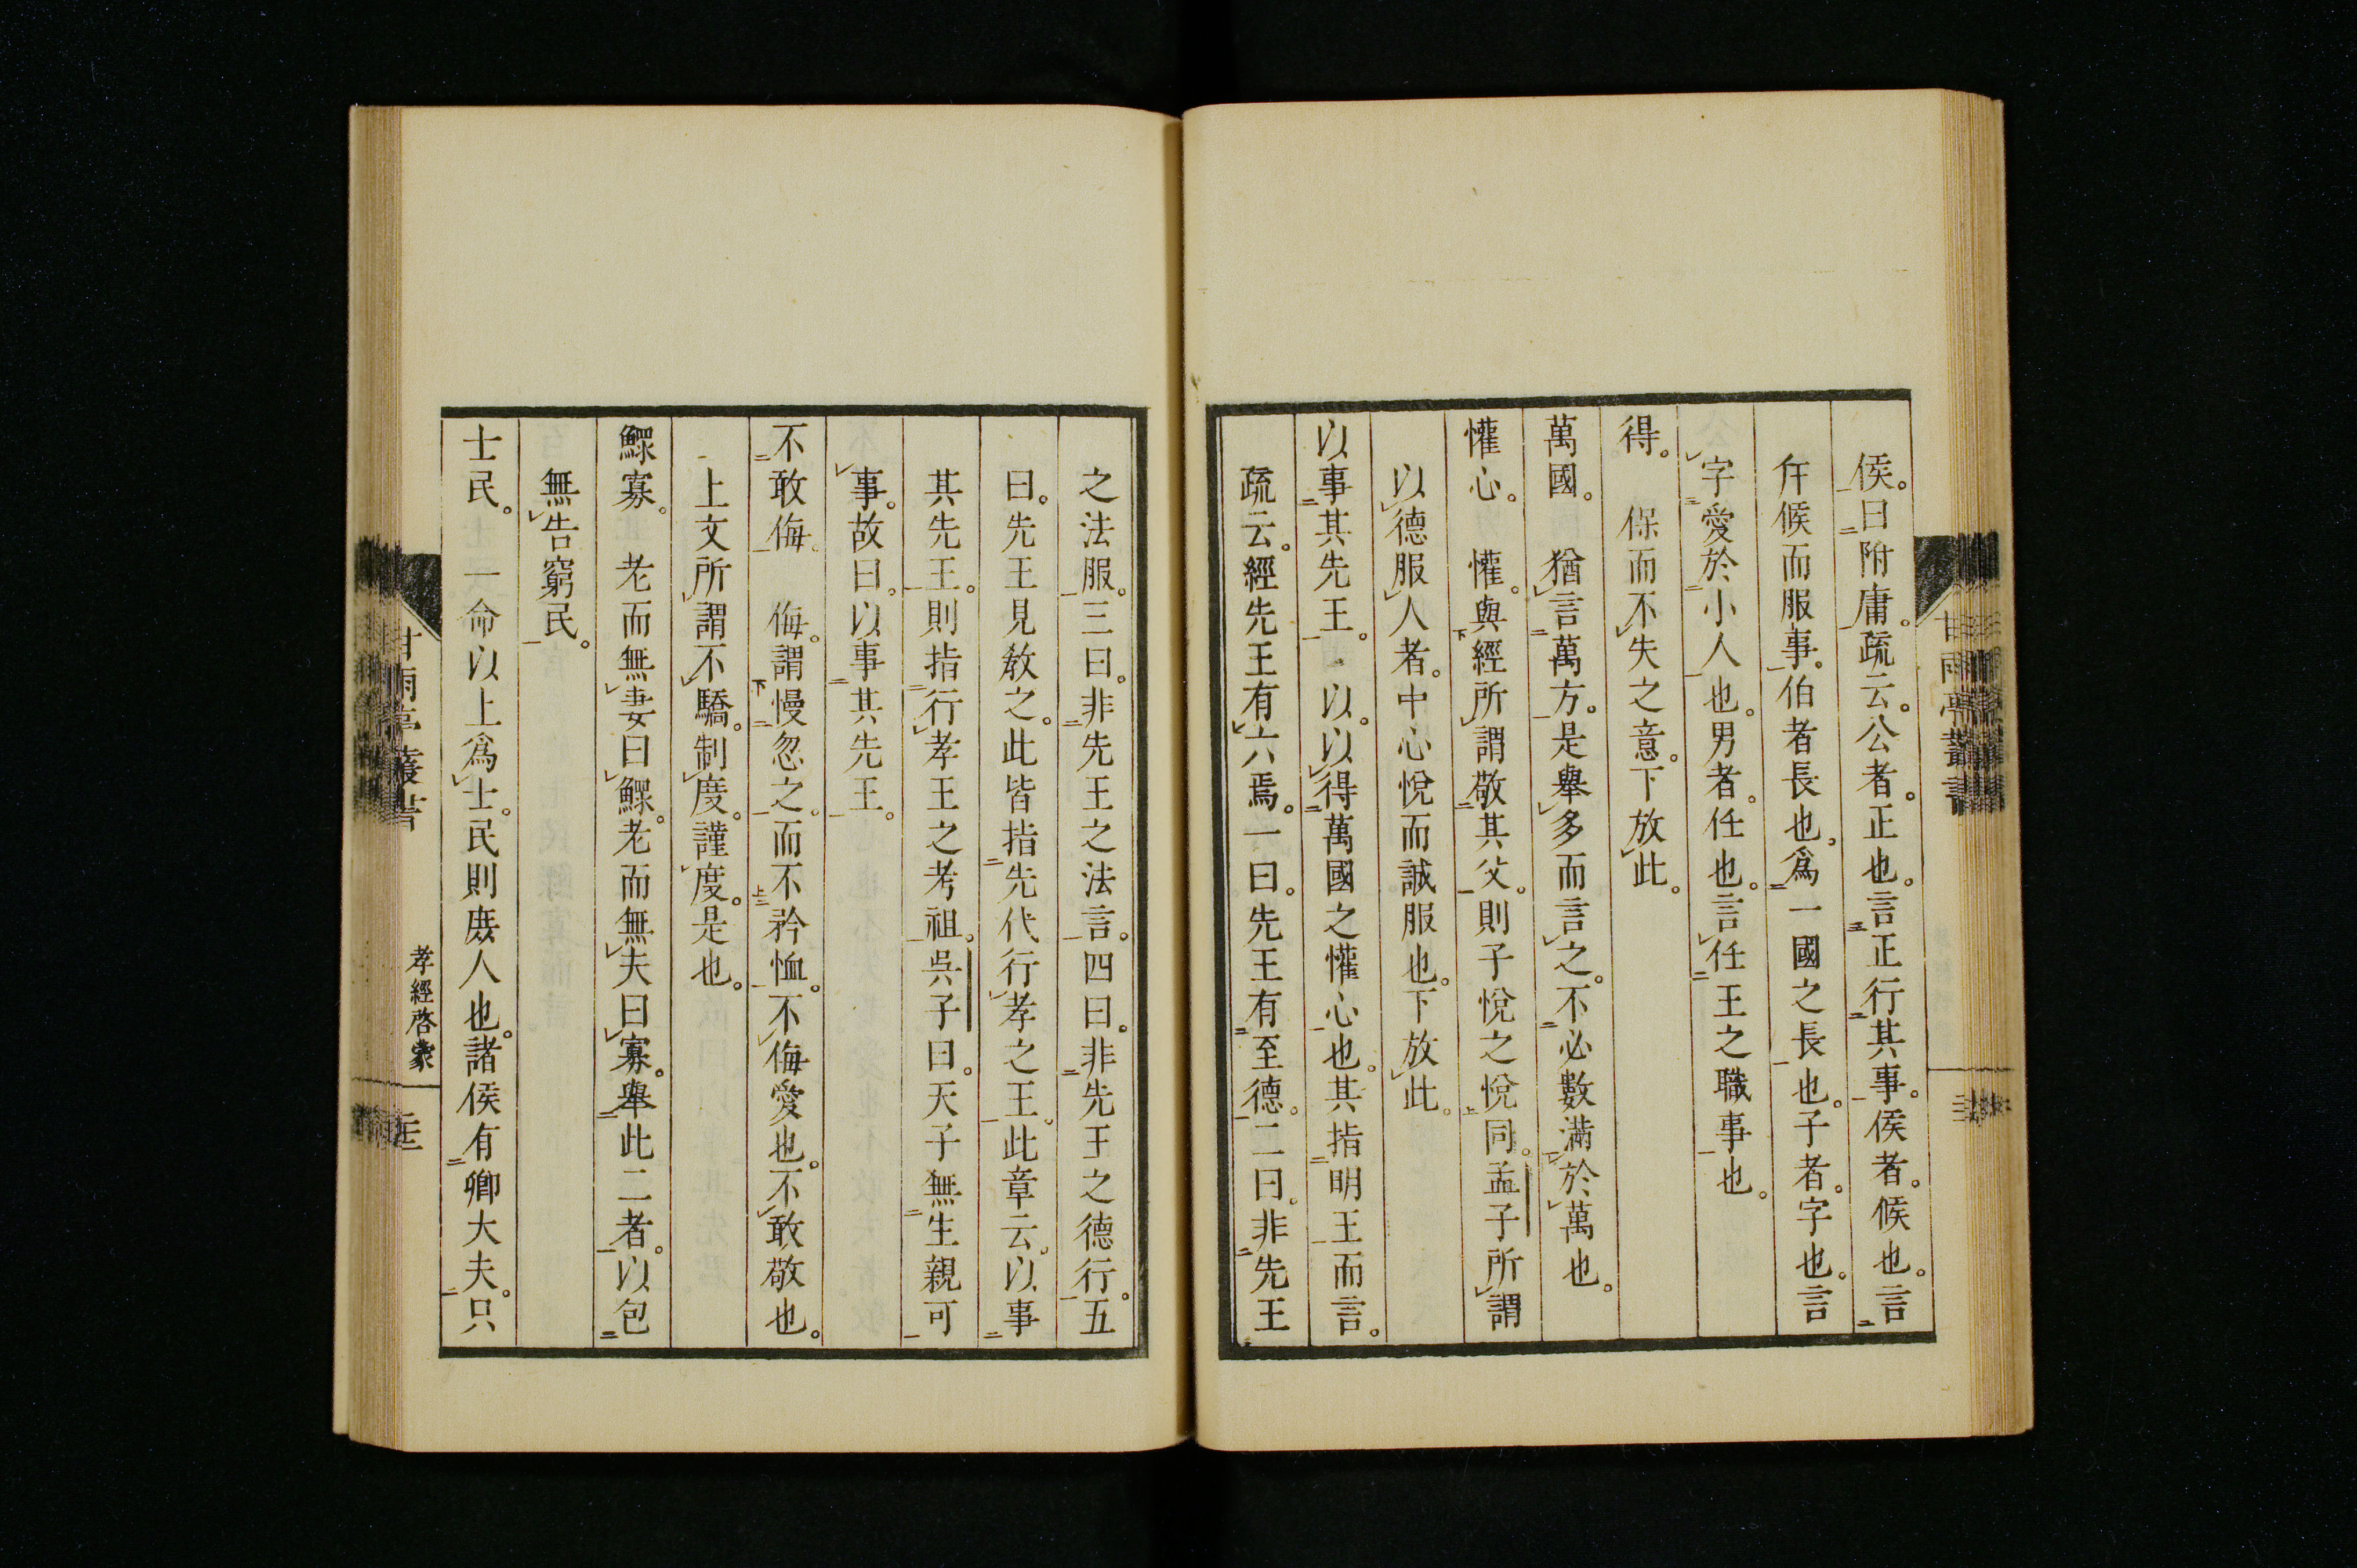 侯。曰附庸。疏云。公者。正也。言正行其事。侯者。候也。言
斥候而服事。伯者長也。爲一國之長也。子者。字也。言
字愛於小人也。男者。任也。言任王之職事也。
得。 保而不失之意。下放此。
萬國。 猶言萬方。是舉多而言之。不必數滿於萬也。
懽心。 懽。與經所謂敬其父。則子悅之悅同。孟子所謂
以德服人者。中心悅而誠服也。下放此。
以事其先王。 以。以得萬國之懽心也。其指明王而言。
疏云。經先王有六焉。一曰。先王有至德。二曰。非先王
之法服。三曰。非先王之法言。四曰。非先王之德行。五
曰。先王見敎之。此皆指先代行孝之王。此章云。以事
其先王。則指行孝王之考祖。吳子曰。天子無生親可
事。故曰。以事其先王。
不敢侮。 侮。謂慢忽之。而不矜恤。不侮愛也。不敢敬也。
上文所謂不驕。制度。謹度。是也。
鰥寡。 老而無妻曰鰥。老而無夫曰寡。舉此二者。以包
無告窮民。
士民。 一命以上爲士。民則庻人也。諸侯有卿大夫。只
甘雨亭叢書
孝經啓蒙
甘雨亭叢書